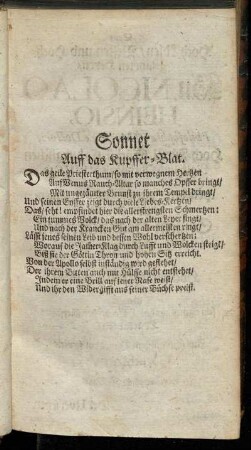 Sonnet
Auff das Kupffer-Blat.
Das geile Priesterthum/ so mit verwegnem Hertzen
Auff Venus Rauch-Altar so manches Opffer bringt/
Mit ungezäumter Brunst zu ihrem Tempel dringt/
Und seinen Eyffer zeigt durch viele Liebes-Kertzen/
Das/ seht! empfindet hier die allerstrengsten Schmertzen:
Ein tummes Volck/ das nach der alten Leyer singt/
Und nach der Krancken Gut am allermeisten ringt/
Läßt jenes seinen Leib und dessen Wohl verschertzen:
Worauf die Jammer-Klag durch Lufft und Wolcken steigt/
Biß sie der Göttin Thron und hohen Sitz erreicht.
Von der Apollo selbst inständig wird geflehet/
Der ihrem Baten auch mit Hülffe nicht entstehet/
Indem er eine Brill auf jener Nase weist/
Und ihr den Widergifft aus seiner Büchse preist.